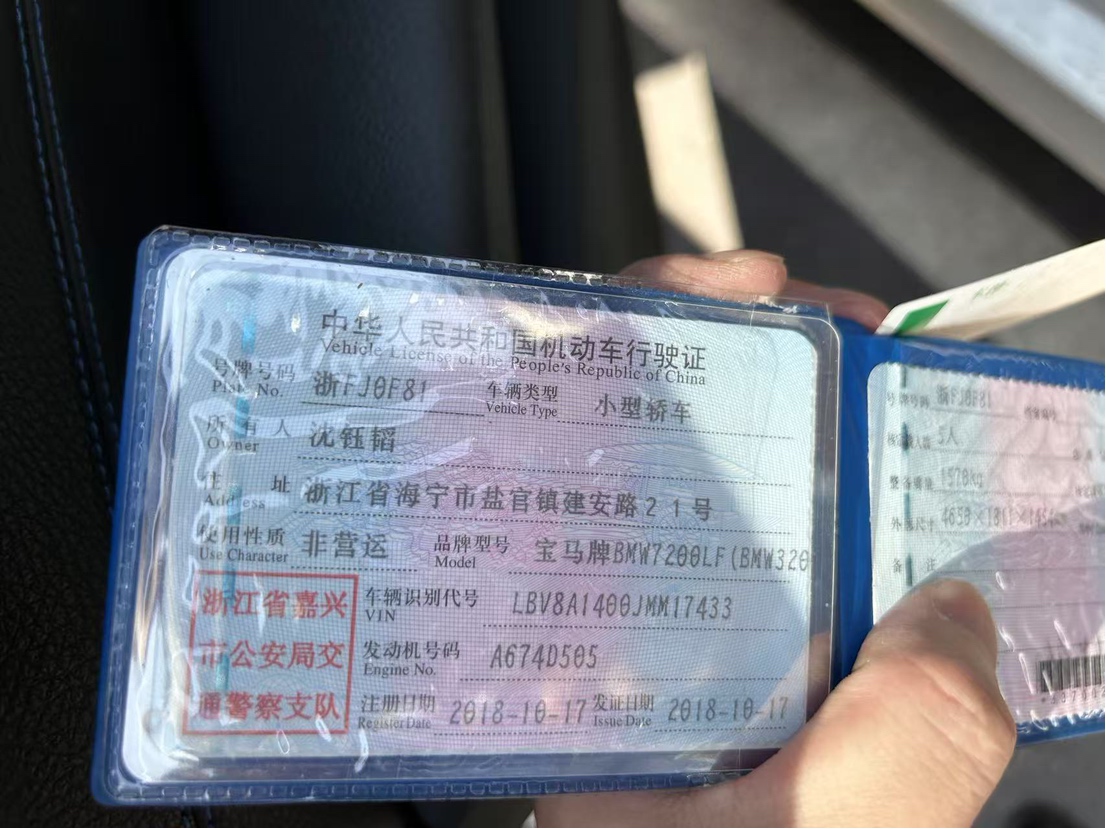 中华人民共和国机动车行驶证
Vehicle License of the People's Republic of China
号牌号码 浙FJ0F81 车辆类型 小型轿车
Plate No Vehicle Type
所有人 沈钰韬
Owner
住址 浙江省海宁市盐官镇建安路21号
Address
使用性质 非营运 品牌型号 宝马牌BMW7200LF(BMW320
Use Character Model
浙江省嘉兴
市公安局交
通警察支队
车辆识别代号 LBV8A1400JMM17433
VIN
发动机号码 A674D505
Engine No.
注册日期 2018-10-17 发证日期 2018-10-17
Register Date Issue Date
号牌号码 浙FJ0F81
核定载人数 5人
整备质量 1570kg
外廓尺寸
备注